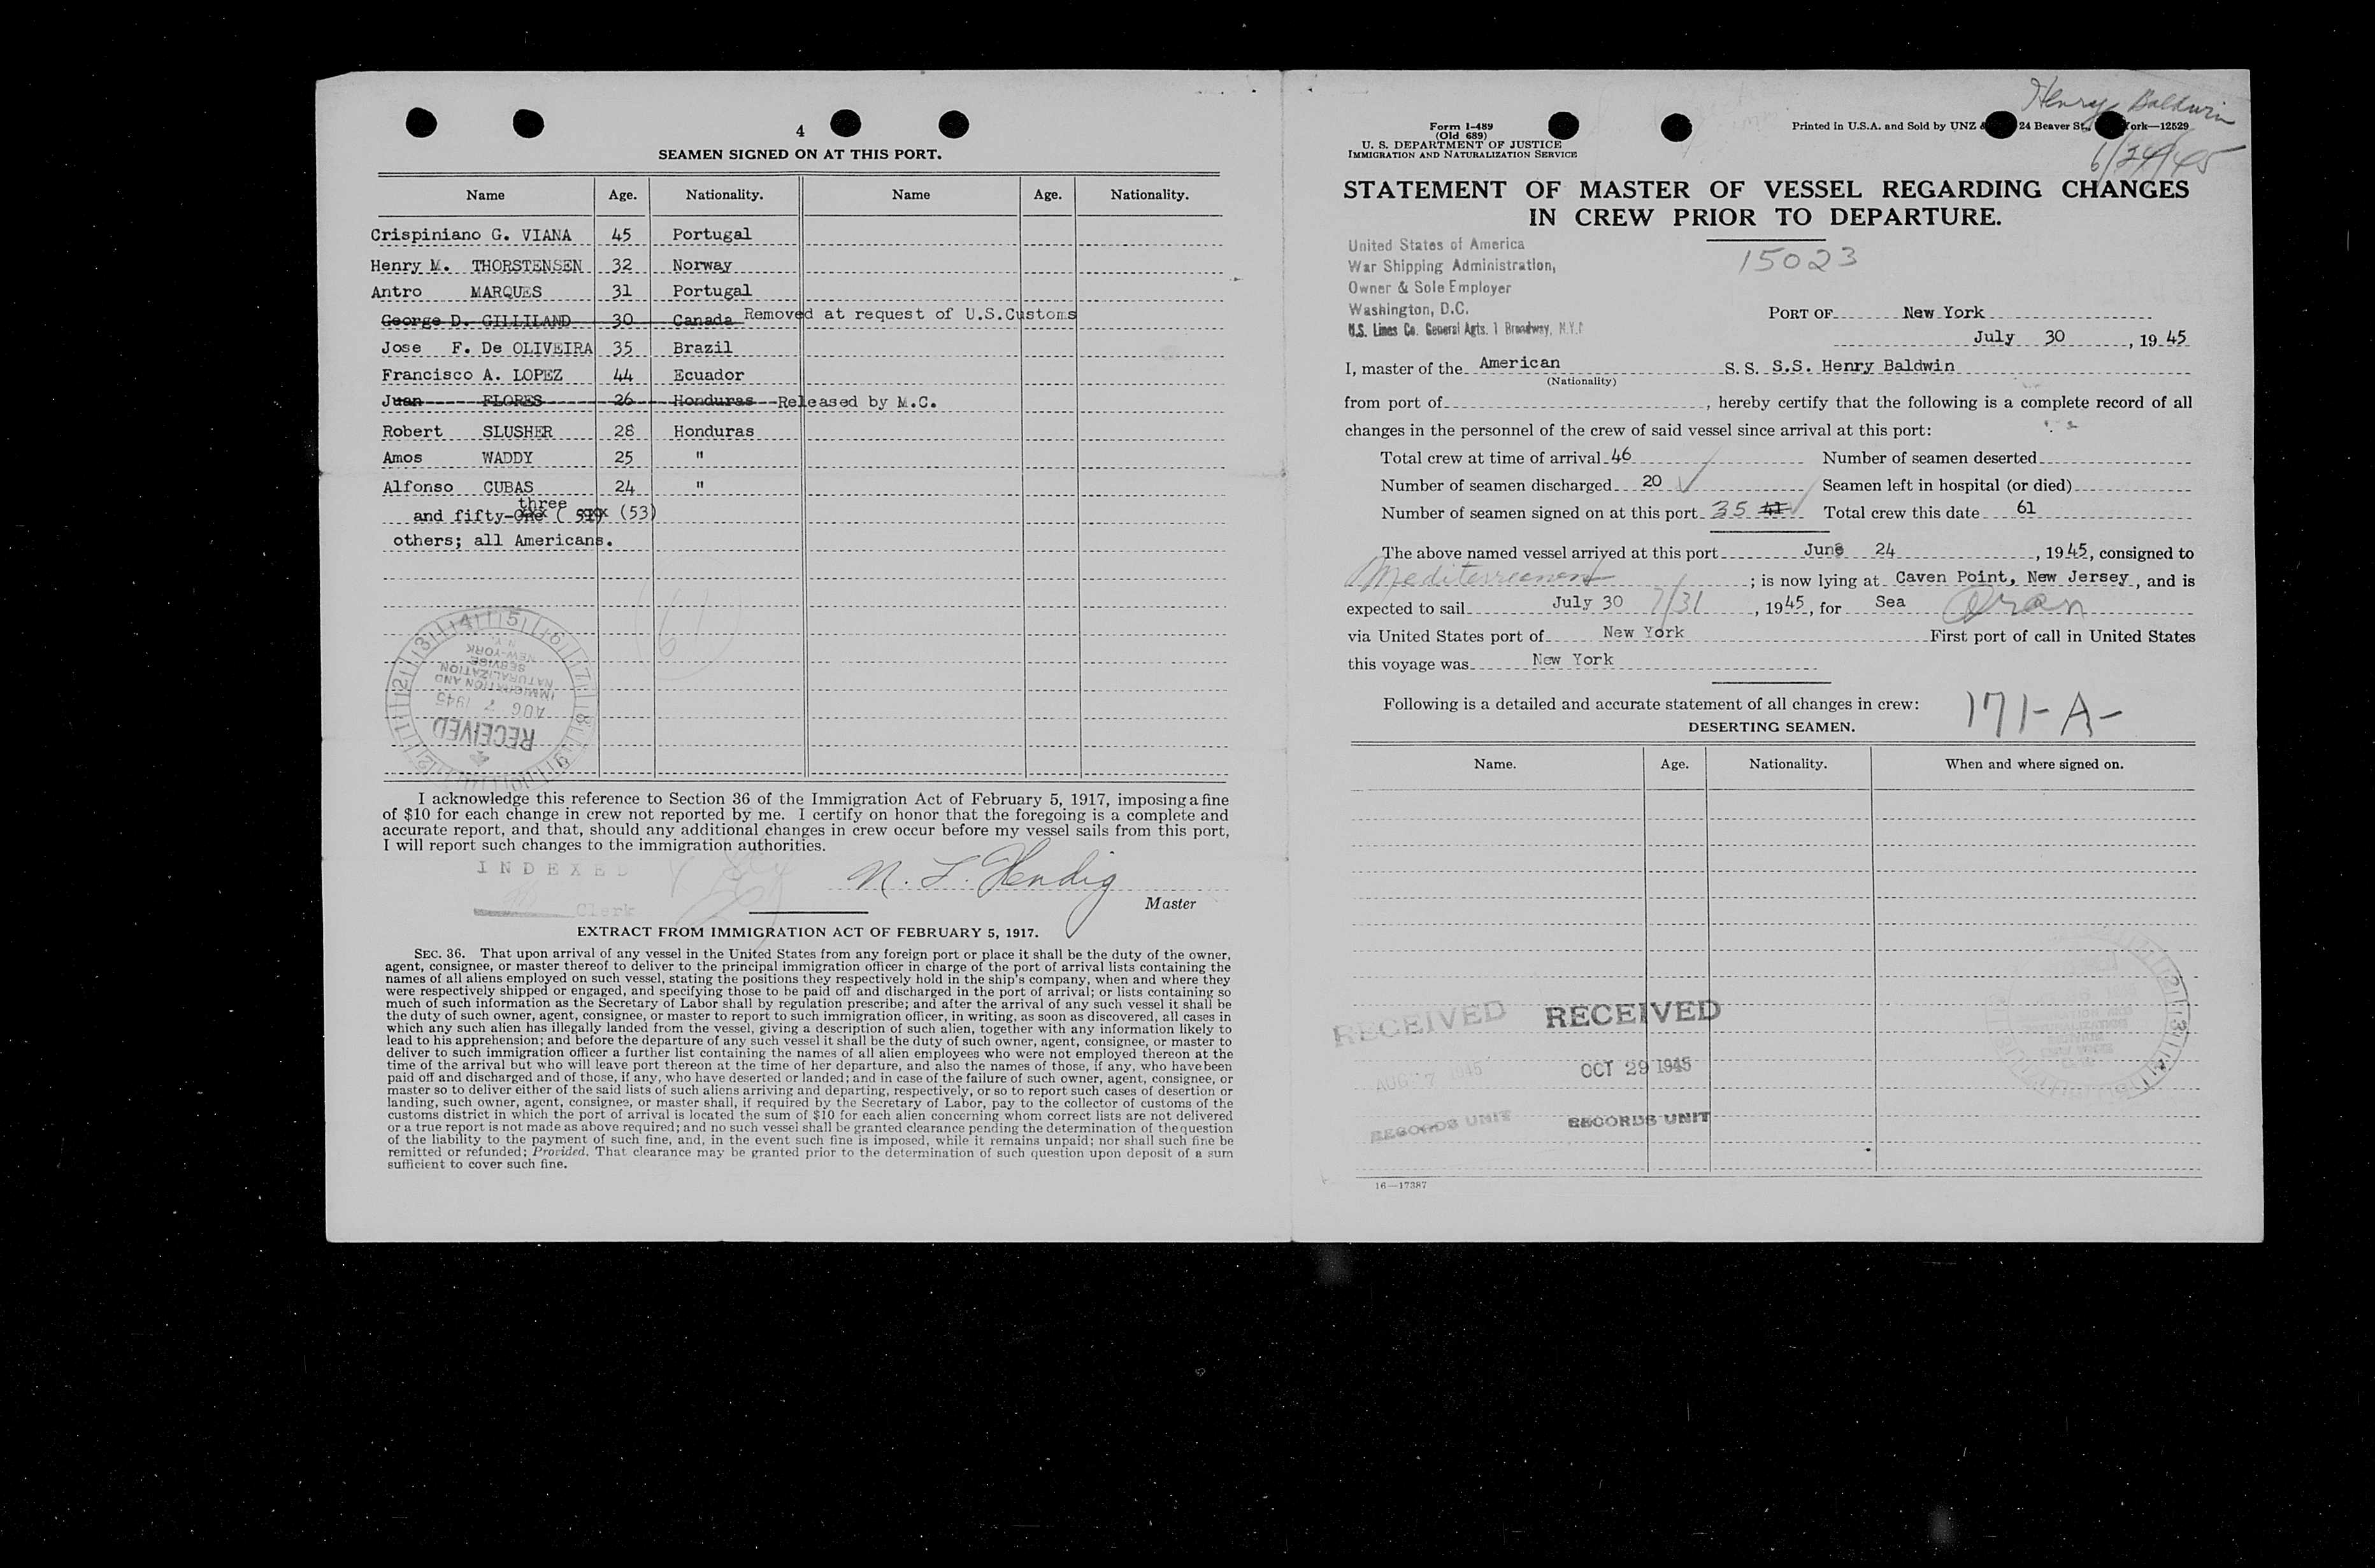 4
SEAMEN SIGNED ON AT THIS PORT.
Name Age. Nationality. Name Age. Nationality.
Crispiniano G. VIANA 45 Portugal
Henry M. THORSTENSEN 32 Norway
Antro MARQUES 31 Portugal
George D. GILLILAND 30 Canada Removed at request of U.S.Customs
Jose F. De OLIVEIRA 35 Brazil
Francisco A. LOPEZ 44 Ecuador
Juan FLORES 26 Honduras Released by M.C.
Robert SLUSHER 28 Honduras
Amos WADDY 25 "
Alfonso CUBAS 24 "
three
and fifty-one ( 51) (53)
others; all Americans.
61
RECEIVED
AUG 7 1945
IMMIGRATION AND
NATURALIZATION
SERVICE
NEW-YORK
N.Y.
I acknowledge this reference to Section 36 of the Immigration Act of February 5, 1917, imposing a fine
of $10 for each change in crew not reported by me. I certify on honor that the foregoing is a complete and
accurate report, and that, should any additional changes in crew occur before my vessel sails from this port,
I will report such changes to the immigration authorities.
INDEXED
Clerk
N. L. Hendig
Master
EXTRACT FROM IMMIGRATION ACT OF FEBRUARY 5, 1917.
SEC. 36. That upon arrival of any vessel in the United States from any foreign port or place it shall be the duty of the owner,
agent, consignee, or master thereof to deliver to the principal immigration officer in charge of the port of arrival lists containing the
names of all aliens employed on such vessel, stating the positions they respectively hold in the ship's company, when and where they
were respectively shipped or engaged, and specifying those to be paid off and discharged in the port of arrival; or lists containing so
much of such information as the Secretary of Labor shall by regulation prescribe; and after the arrival of any such vessel it shall be
the duty of such owner, agent, consignee, or master to report to such immigration officer, in writing, as soon as discovered, all cases in
which any such alien has illegally landed from the vessel, giving a description of such alien, together with any information likely to
lead to his apprehension; and before the departure of any such vessel it shall be the duty of such owner, agent, consignee, or master to
deliver to such immigration officer a further list containing the names of all alien employees who were not employed thereon at the
time of the arrival but who will leave port thereon at the time of her departure, and also the names of those, if any, who have been
paid off and discharged and of those, if any, who have deserted or landed; and in case of the failure of such owner, agent, consignee, or
master so to deliver either of the said lists of such aliens arriving and departing, respectively, or so to report such cases of desertion or
landing, such owner, agent, consignee, or master shall, if required by the Secretary of Labor, pay to the collector of customs of the
customs district in which the port of arrival is located the sum of $10 for each alien concerning whom correct lists are not delivered
or a true report is not made as above required; and no such vessel shall be granted clearance pending the determination of the question
of the liability to the payment of such fine, and, in the event such fine is imposed, while it remains unpaid; nor shall such fine be
remitted or refunded; Provided, That clearance may be granted prior to the determination of such question upon deposit of a sum
sufficient to cover such fine.
Henry Baldwin
6/24/45
Form I-489
(Old 689)
U. S. DEPARTMENT OF JUSTICE
IMMIGRATION AND NATURALIZATION SERVICE
Printed in U.S.A. and Sold by UNZ & 24 Beaver St., ork—12529
STATEMENT OF MASTER OF VESSEL REGARDING CHANGES
IN CREW PRIOR TO DEPARTURE.
United States of America
War Shipping Administration,
Owner & Sole Employer
Washington, D.C.
U.S. Lines Co. General Agts. 1 Broadway, N.Y.C
15023
PORT OF New York
July 30, 1945
I, master of the American S. S. S.S. Henry Baldwin
(Nationality)
from port of, hereby certify that the following is a complete record of all
changes in the personnel of the crew of said vessel since arrival at this port:
Total crew at time of arrival 46 Number of seamen deserted
Number of seamen discharged 20 Seamen left in hospital (or died)
Number of seamen signed on at this port 35 41 Total crew this date 61
The above named vessel arrived at this port June 24, 1945, consigned to
Mediterranean; is now lying at Caven Point, New Jersey, and is
expected to sail July 30 7/31, 1945, for Sea Oran
via United States port of New York First port of call in United States
this voyage was New York
Following is a detailed and accurate statement of all changes in crew: 171-A-
DESERTING SEAMEN.
Name. Age. Nationality. When and where signed on.
RECEIVED RECEIVED
AUG 7 1945 OCT 29 1945
RECORDS UNIT RECORDS UNIT
16—17387